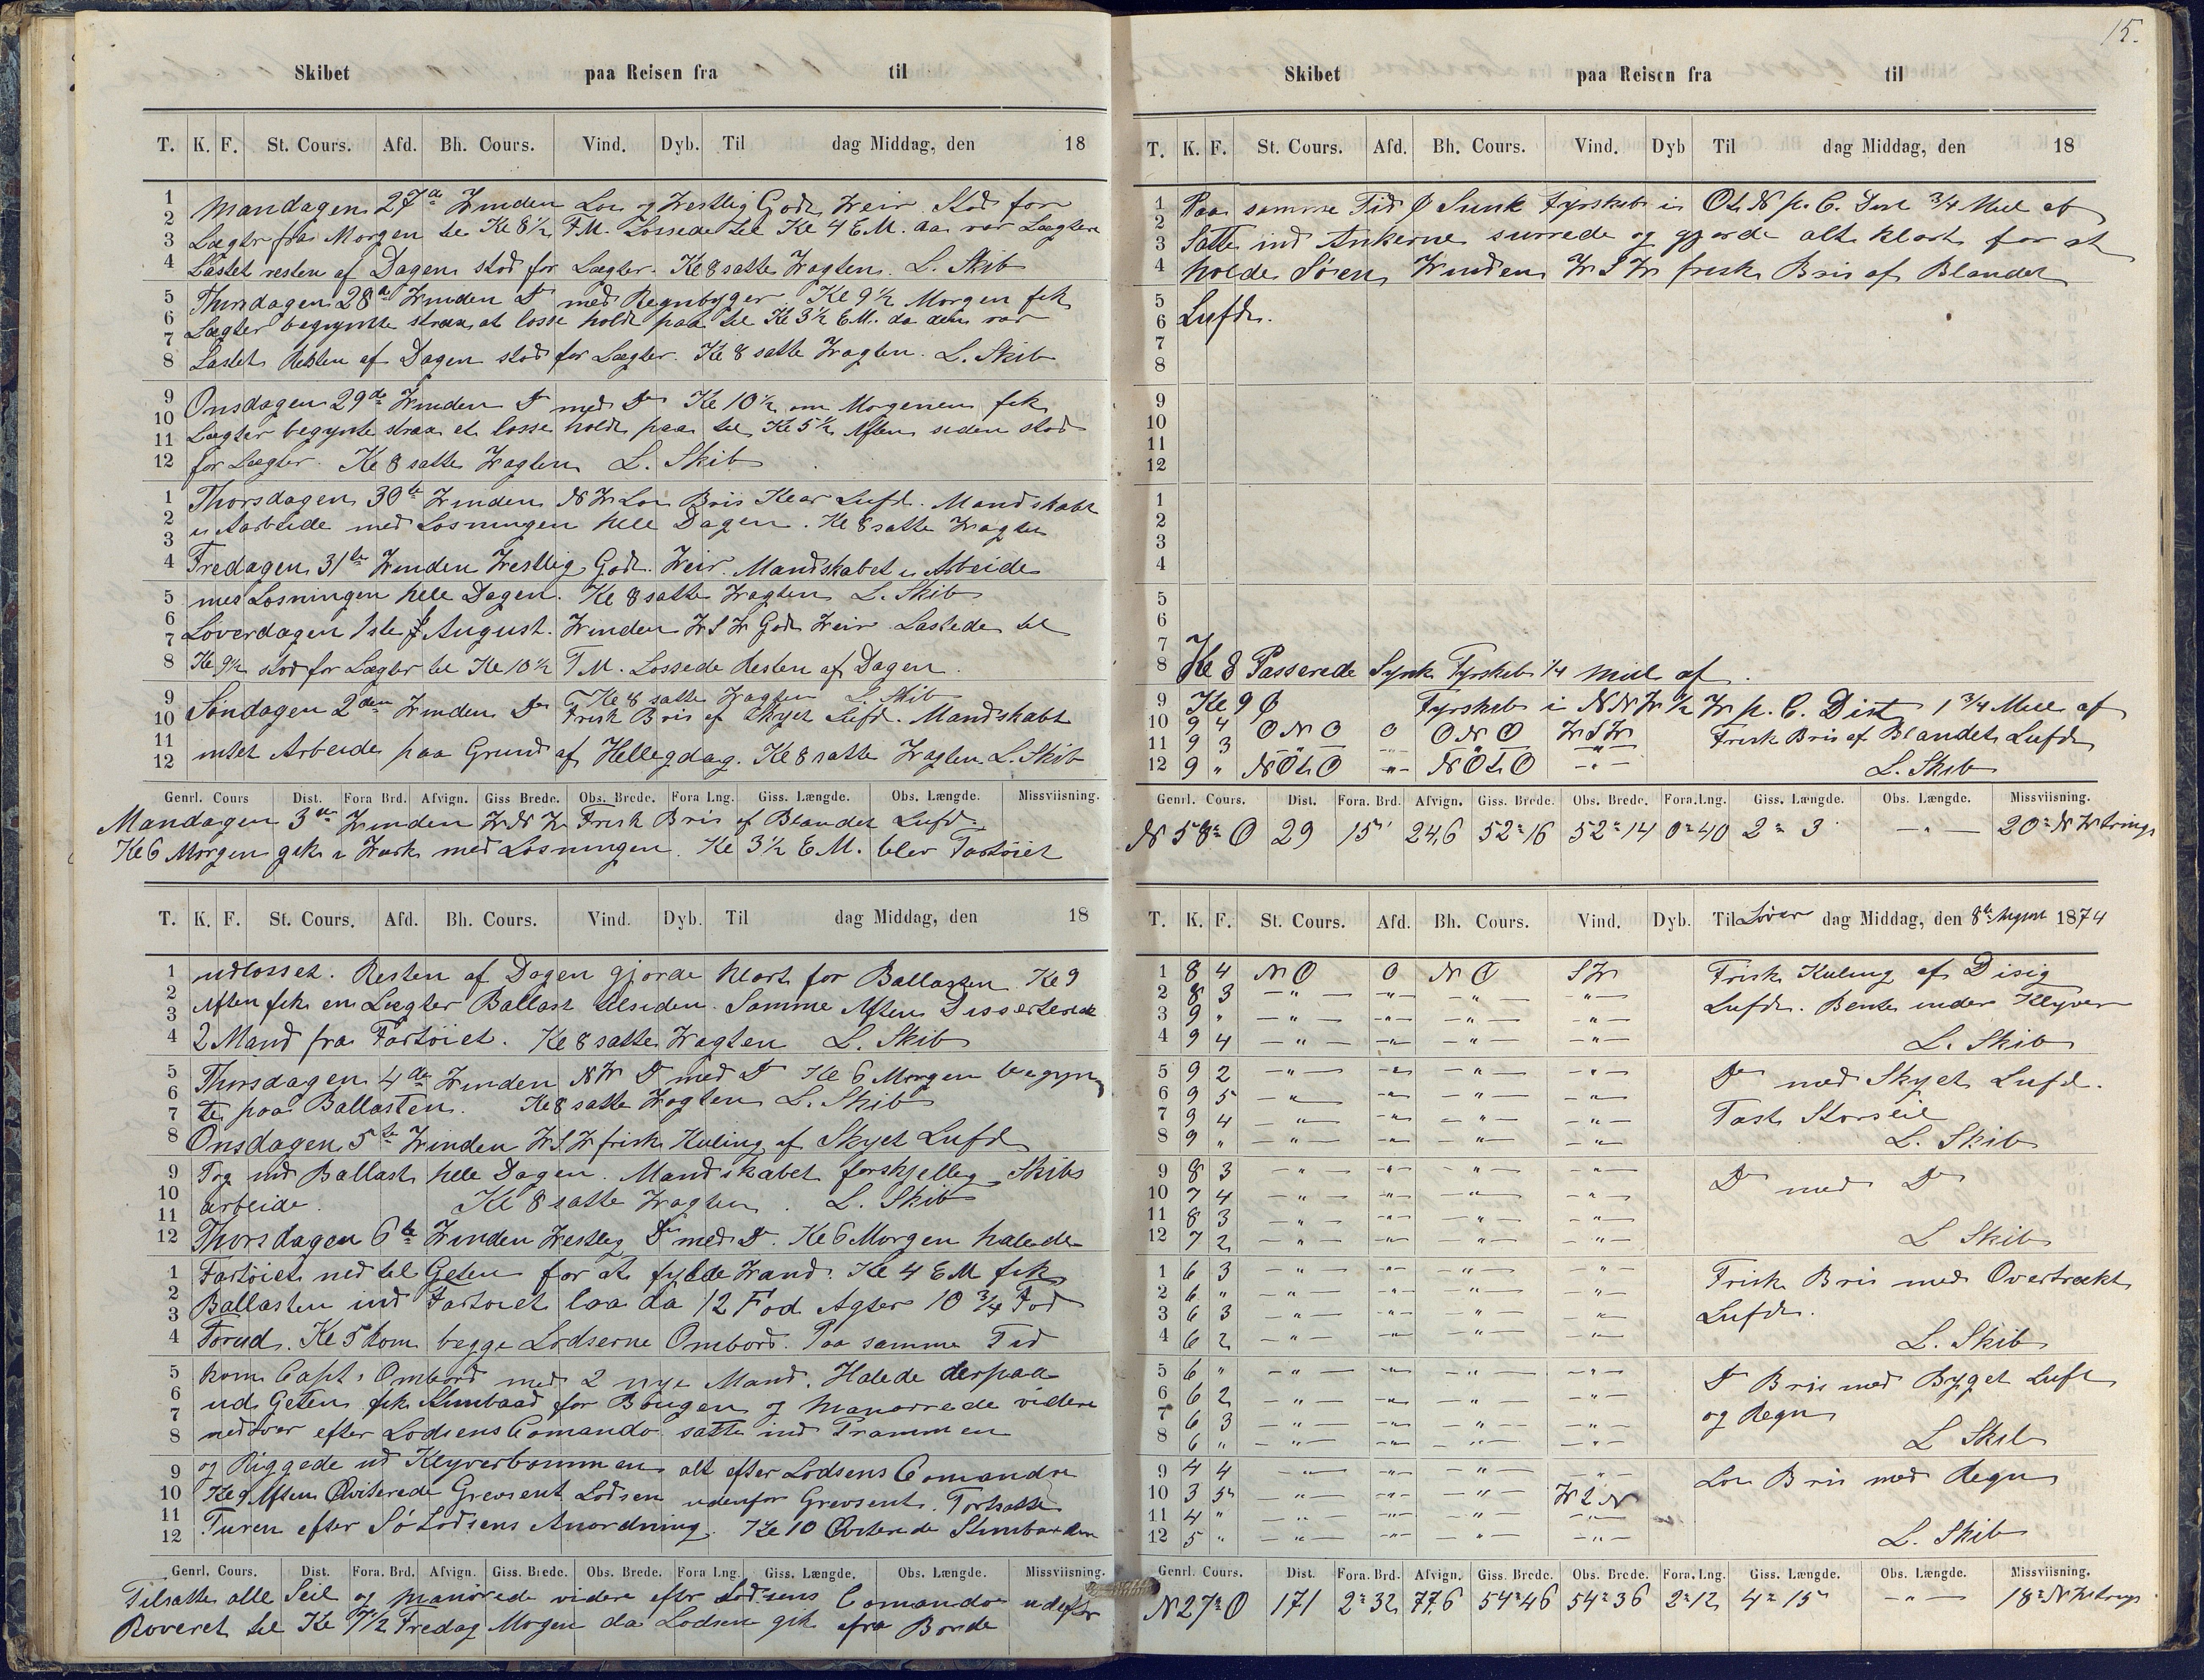 Skibet paa Reisen fra til
T. K. F. St. Cours. Afd. Bh. Cours. Vind. Dyb. Til dag Middag, den 18
1
2
3
4
5
6
7
8
9
10
11
12
1
2
3
4
5
6
7
8
9
10
11
12
Mandagen 27de Winden Lou og Westlig Godt Weir. Stod for
Lægter fra Morgen til Kl 8½ F.M. Lossede til Kl 4 E.M. da var Lægteren
Lastet resten af Dagen stod for Lægter. Kl 8 satte Wagten. L. Skib
Thirsdagen 28de Winden Do med Regnbyger. Kl 9½ Morgen fik
Lægter begynte strax at losse holdt paa til Kl 3½ E.M. da den var
Lastet Resten af Dagen stod for Lægter. Kl 8 satte Wagten. L. Skib
Onsdagen 29de Winden Do med Do Kl 10½ om Morgenen fik
Lægter begynte strax at losse holdt paa til Kl 5½ Aften siden stod
for Lægter. Kl 8 satte Wagten L. Skib
Thorsdagen 30te Winden NW Lou Bris Klar Luft. Mandskabet
i Aarbeide med Losningen hele Dagen. Kl 8 satte Wagten
Fredagen 31te Winden Westlig Godt Weir. Mandskabet i Arbeide
med Losningen hele Dagen. Kl 8 satte Wagten L. Skib
Løverdagen 1ste August. Winden WSW Godt Weir Lastede til
Kl 9½ stod for Lægter til Kl 10½ F.M. Lossede Resten af Dagen.
Kl 8 satte Wagten L. Skib
Søndagen 2den Winden Do Frisk Bris af Skyet Luft. Mandskabt
intet Arbeide paa Grund af Hellegdag. Kl 8 satte Wagten L. Skib
Genrl. Cours Dist. Fora Brd. Afvign. Giss Brede. Obs. Brede. Fora Lng. Giss. Længde. Obs. Længde. Missviisning.
Mandagen 3de Winden WNW Frisk Bris af Blandet Luft
Kl 6 Morgen gik i Wærk med Losningen. Kl 3½ E.M. blev Fartøiet
T. K. F. St. Cours. Afd. Bh. Cours. Vind. Dyb. Til dag Middag, den 18
1
2
3
4
5
6
7
8
9
10
11
12
1
2
3
4
5
6
7
8
9
10
11
12
udlosset. Resten af Dagen gjorde klart for Ballasten. Kl 9
Aften fik en Lægter Ballast tilsiden. Samme Aften Disserterede
2 Mand fra Fartøiet. Kl 8 satte Wagten L. Skib
Thirsdagen 4de Winden NW Do med Do Kl 6 Morgen begyn
te paa Ballasten. Kl 8 satte Wagten L. Skib
Onsdagen 5te Winden WSW frisk Kuling af Skyet Luft
Tog ind Ballast hele Dagen. Mandskabet forskjellig Skibs
arbeide. Kl 8 satte Wagten. L. Skib
Thorsdagen 6te Winden Westlig Do med Do. Kl 6 Morgen halede
Fartøiet ned til Geten for at fylde Wand. Kl 4 E.M fik
Ballasten ind Fartøiet laa da 12 Fod Agter 10¾ Fod
Forud. Kl 5 kom begge Lodserne Ombord. Paa samme Tid
kom Capt. Ombord med 2 nye Mand. Halede derpaa
ud Geten fik Stimbaad for Bougen og Manørrede videre
nedover efter Lodsens Comando satte ind Prammen
og Riggede ud Klyverbommen alt efter Lodsens Comando
Kl 9 Aften Qviterede Grevsent Lodsen udenfor Grevsent. Fortsatte
Turen efter Sø Lodsens Anordning. Kl 10 Qviterede Stimbaaden
Genrl. Cours. Dist. Fora. Brd. Afvign. Giss. Brede. Obs. Brede. Fora Lng. Giss. Længde. Obs. Længde. Missviisning.
Tilsatte alle Seil og Manørede videre efter Lodsens Comando udefter
Roveret til Kl 7½ Fredag Morgen da Lodsen gik fra Borde
15.
Skibet paa Reisen fra til
T. K. F. St. Cours. Afd. Bh. Cours. Vind. Dyb Til dag Middag, den 18
1
2
3
4
5
6
7
8
9
10
11
12
1
2
3
4
5
6
Paa samme Tid Ø Sunk Fyrskib i OtN p. C. Dist ¾ Miil af
Satte ind Ankerne surrede og gjorde alt klart for at
holde Søen, Winden WSW frisk Bris af Blandet
Luft.
7
8 Kl 8 Passerede Synk Fyrskib ¼ Miil af.
9 Kl 9 Ø Fyrskib i NNW ½ W p. C. Dist 1¾ Miil af
10 9 4 ONO 0 ONO WSW Frisk Bris af Blandet Luft
11 9 3 — " — — " — — " — — " —
12 9 " NOtO — " — NOtO — " — L. Skib
Genrl. Cours. Dist. Fora. Brd. Afvign. Giss. Brede. Obs. Brede. Fora. Lng. Giss. Længde. Obs. Længde. Missviisning.
N 58° O 29 15' 24,6 52° 16 52° 14 0° 40 2° 3 — " — 20° NWstrings
T. K. F. St. Cours. Afd. Bh. Cours. Vind. Dyb. Til Løver dag Middag, den 8te August 1874
1 8 4 NO 0 NO SW Frisk Kuling af Disig
2 8 3 — " — — " — — " — — " — Luft. Bente under Klyver
3 9 " — " — — " — — " — — " —
4 9 4 — " — — " — — " — — " — L. Skib
5 9 2 — " — — " — — " — — " — Do med Skyet Luft.
6 9 5 — " — — " — — " — — " —
7 9 4 — " — — " — — " — — " — Fast Storseil
8 9 " — " — — " — — " — — " — L. Skib
9 8 3 — " — — " — — " — — " — Do med Do
10 7 4 — " — — " — — " — — " —
11 8 3 — " — — " — — " — — " —
12 7 2 — " — — " — — " — — " — L Skib
1 6 3 — " — — " — — " — — " — Frisk Bris med Overtrækt
2 6 " — " — — " — — " — — " —
3 6 3 — " — — " — — " — — " — Luft.
4 6 2 — " — — " — — " — — " — L. Skib
5 6 " — " — — " — — " — — " — Do Bris med Bygget Luft
6 6 2 — " — — " — — " — — " —
7 6 3 — " — — " — — " — — " — og Regn
8 6 " — " — — " — — " — — " — L Skib
9 4 4 — " — — " — — " — — " — Lou Bris med Regn
10 3 5 — " — — " — — " — WtN
11 4 " — " — — " — — " — — " —
12 5 " — " — — " — — " — L. Skib
Genrl. Cours. Dist. Fora. Brd. Afvign. Giss. Brede. Obs. Brede. Fora. Lng. Giss. Længde. Obs. Længde. Missviisning.
N 27° O 171 2° 32 77,6 54° 46 54° 36 2° 12 4° 15' — " — 18° NWstrings